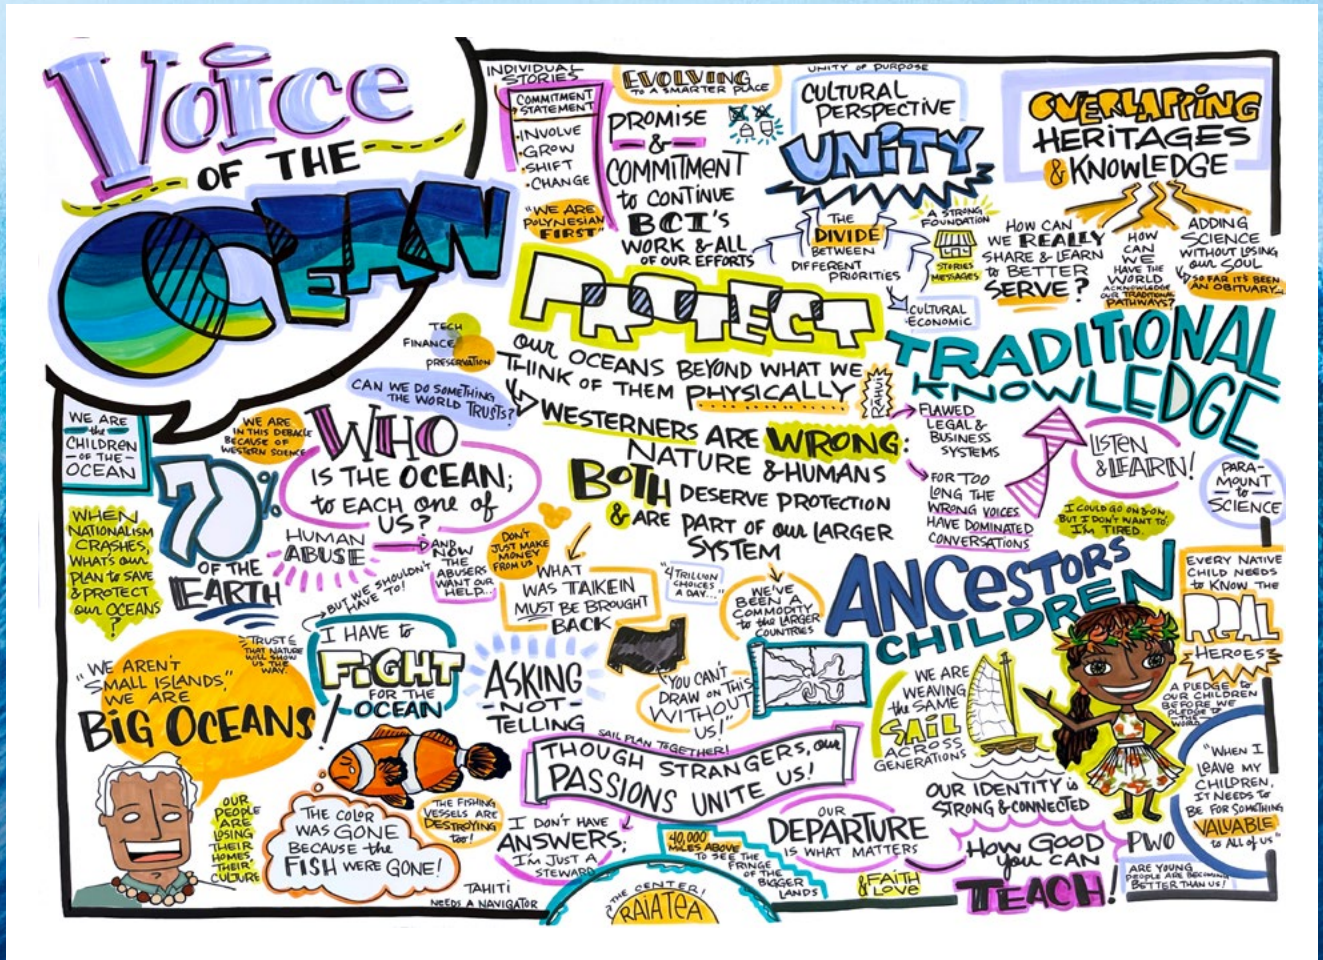 VOICE
OF THE
OCEAN
INDIVIDUAL
STORIES
COMMITMENT
STATEMENT
•INVOLVE
•GROW
•SHIFT
•CHANGE
"WE ARE
POLYNESIAN
FIRST"
EVOLVING
TO A SMARTER PLACE
PROMISE
&
COMMITMENT
to CONTINUE
BCI'S
WORK & ALL
OF OUR EFFORTS
UNITY OF PURPOSE
CULTURAL
PERSPECTIVE
UNITY
THE
DIVIDE
BETWEEN
DIFFERENT
PRIORITIES
A STRONG
FOUNDATION
STORIES
MESSAGES
CULTURAL
ECONOMIC
OVERLAPPING
HERITAGES
& KNOWLEDGE
HOW CAN
WE REALLY
SHARE & LEARN
to BETTER
SERVE?
HOW
CAN
WE
HAVE THE
WORLD
ACKNOWLEDGE
OUR TRADITIONAL
PATHWAYS?
ADDING
SCIENCE
WITHOUT LOSING
our SOUL
SO FAR IT'S BEEN
AN OBITUARY...
PROTECT
our OCEANS BEYOND WHAT WE
THINK OF THEM PHYSICALLY
RAHUI
TECH
FINANCE
PRESERVATION
CAN WE DO SOMETHING
THE WORLD TRUSTS?
TRADITIONAL
KNOWLEDGE
WESTERNERS ARE WRONG:
NATURE & HUMANS
BOTH DESERVE PROTECTION
& ARE PART OF our LARGER
SYSTEM
FLAWED
LEGAL &
BUSINESS
SYSTEMS
FOR TOO
LONG THE
WRONG VOICES
HAVE DOMINATED
CONVERSATIONS
LISTEN
& LEARN!
PARA-
MOUNT
to
SCIENCE
I COULD GO ON & ON
BUT I DON'T WANT TO.
I'M TIRED.
WE ARE
the
CHILDREN
OF THE
OCEAN
WE ARE
IN THIS DEBACLE
BECAUSE OF
WESTERN SCIENCE
WHO
IS THE OCEAN;
to EACH one of
US?
70%
OF THE
EARTH
WHEN
NATIONALISM
CRASHES,
WHAT'S our
PLAN to SAVE
& PROTECT
our OCEANS
?
HUMAN
ABUSE
AND
NOW
THE
ABUSERS
WANT OUR
HELP...
BUT WE SHOULDN'T
HAVE TO!
DON'T
JUST MAKE
MONEY
FROM US
WHAT
WAS TAIKEIN
MUST BE BROUGHT
BACK
"4 TRILLION
CHOICES
A DAY..."
WE'VE
BEEN A
COMMODITY
to the LARGER
COUNTRIES
ANCESTORS
CHILDREN
EVERY NATIVE
CHILD NEEDS
to KNOW THE
REAL
HEROES
A PLEDGE to
OUR CHILDREN
BEFORE WE
PLEDGE to
THE
WORLD
TRUST
THAT NATURE
WILL SHOW
US THE
WAY.
"WE AREN'T
SMALL ISLANDS,"
WE ARE
BIG OCEANS!
I HAVE to
FIGHT
FOR THE
OCEAN
ASKING
NOT
TELLING
"YOU CAN'T
DRAW ON THIS
WITHOUT
US!"
SAIL PLAN TOGETHER!
THOUGH STRANGERS, our
PASSIONS UNITE US!
WE ARE
WEAVING
the SAME
SAIL
ACROSS
GENERATIONS
OUR IDENTITY is
STRONG & CONNECTED
"WHEN I
LEAVE MY
CHILDREN,
IT NEEDS to
BE FOR SOMETHING
VALUABLE"
to ALL of US
OUR
PEOPLE
ARE
LOSING
THEIR
HOMES,
THEIR
CULTURE
THE COLOR
WAS GONE
BECAUSE the
FISH WERE GONE!
THE FISHING
VESSELS ARE
DESTROYING
too!
I DON'T HAVE
ANSWERS;
I'M JUST A
STEWARD
TAHITI
NEEDS A NAVIGATOR
40,000
MILES ABOVE
TO SEE THE
FRINGE
OF THE
BIGGER
LANDS
THE CENTER!
RAIATEA
OUR
DEPARTURE
IS WHAT MATTERS
& FAITH
LOVE
HOW GOOD
you CAN
TEACH!
PWO
ARE YOUNG
PEOPLE ARE BECOMING
BETTER THAN US!